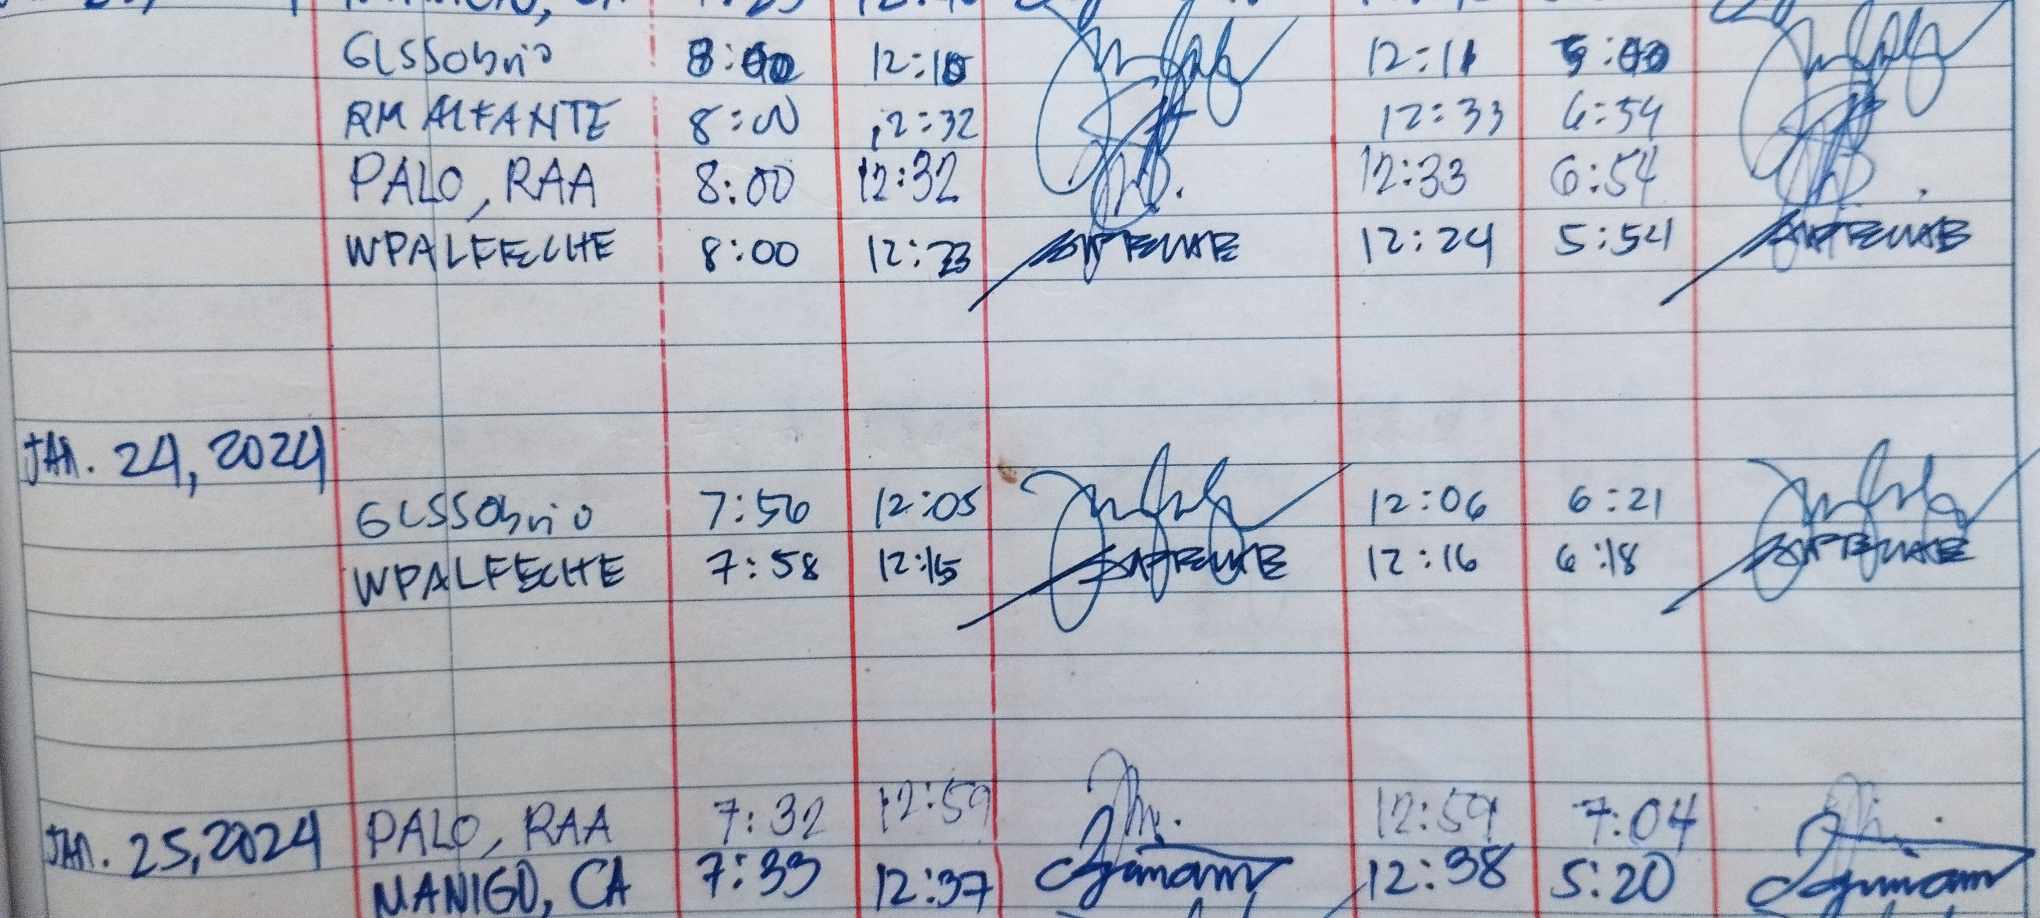 GLSSobrio 8:00 12:10 12:11 5:00
RM ALFANTE 8:00 12:32 12:33 6:54
PALO, RAA 8:00 12:32 12:33 6:54
WPALFECHE 8:00 12:23 12:24 5:54
JAN. 24, 2024
GLSSobrio 7:56 12:05 12:06 6:21
WPALFECHE 7:58 12:15 12:16 6:18
JAN. 25, 2024 PALO, RAA 7:32 12:59 12:59 7:04
MANIGO, CA 7:33 12:37 12:38 5:20